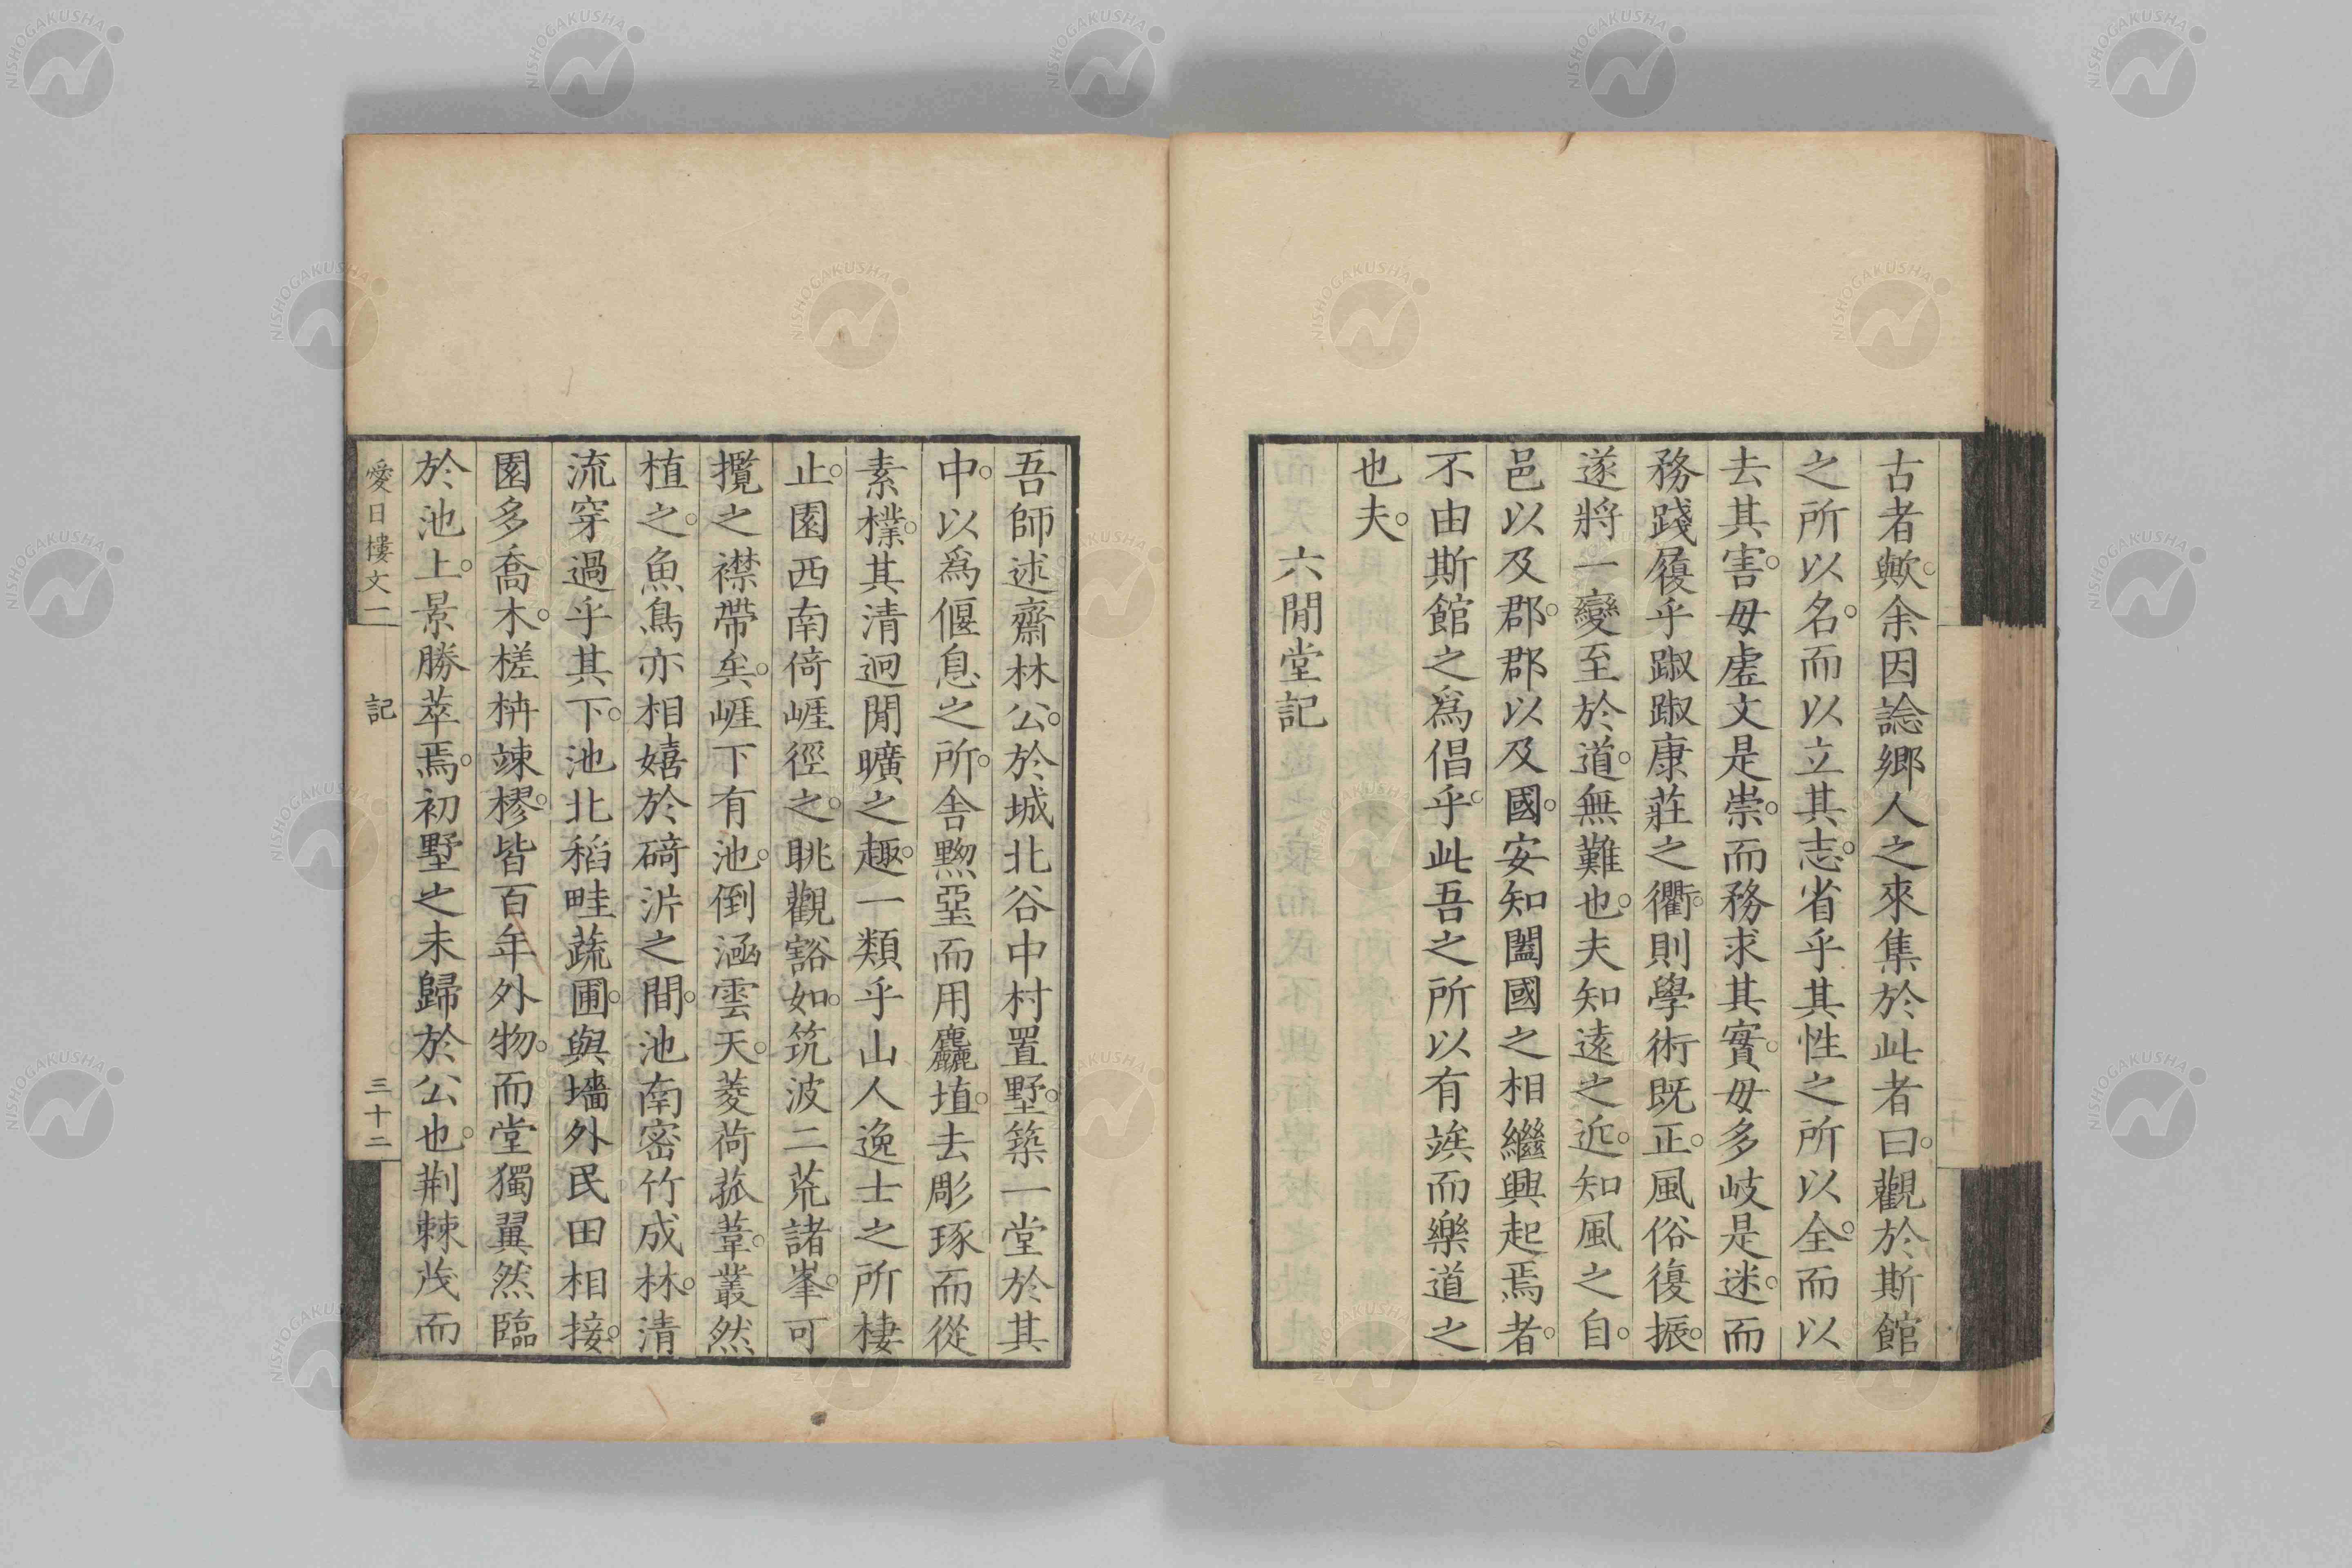 古者歟。余因諗鄉人之來集於此者曰。觀於斯館
之所以名。而以立其志。省乎其性之所以全。而以
去其害。毋虛文是崇。而務求其實。毋多岐是迷。而
務踐履乎踧踧康莊之衢。則學術既正。風俗復振。
遂將一變至於道。無難也。夫知遠之近。知風之自。
邑以及郡。郡以及國。安知闔國之相繼興起焉者。
不由斯館之爲倡乎。此吾之所以有竢而樂道之
也夫。
六閒堂記
吾師述齋林公。於城北谷中村置墅。築一堂於其
中。以爲偃息之所。舍黝堊而用麤埴。去彫琢而從
素樸。其清迥閒曠之趣。一類乎山人逸士之所棲
止。園西南倚崕徑之。眺觀豁如。筑波二荒諸峯。可
攬之襟帶矣。崕下有池。倒涵雲天。菱荷菰葦。叢然
植之。魚鳥亦相嬉於碕沜之間。池南密竹成林。清
流穿過乎其下。池北稻畦蔬圃。與墻外民田相接。
園多喬木。槎枿竦樛。皆百年外物。而堂獨翼然臨
於池上。景勝萃焉。初墅之未歸於公也。荆棘茂而
愛日樓文二 記 三十二
NISHOGAKUSHA